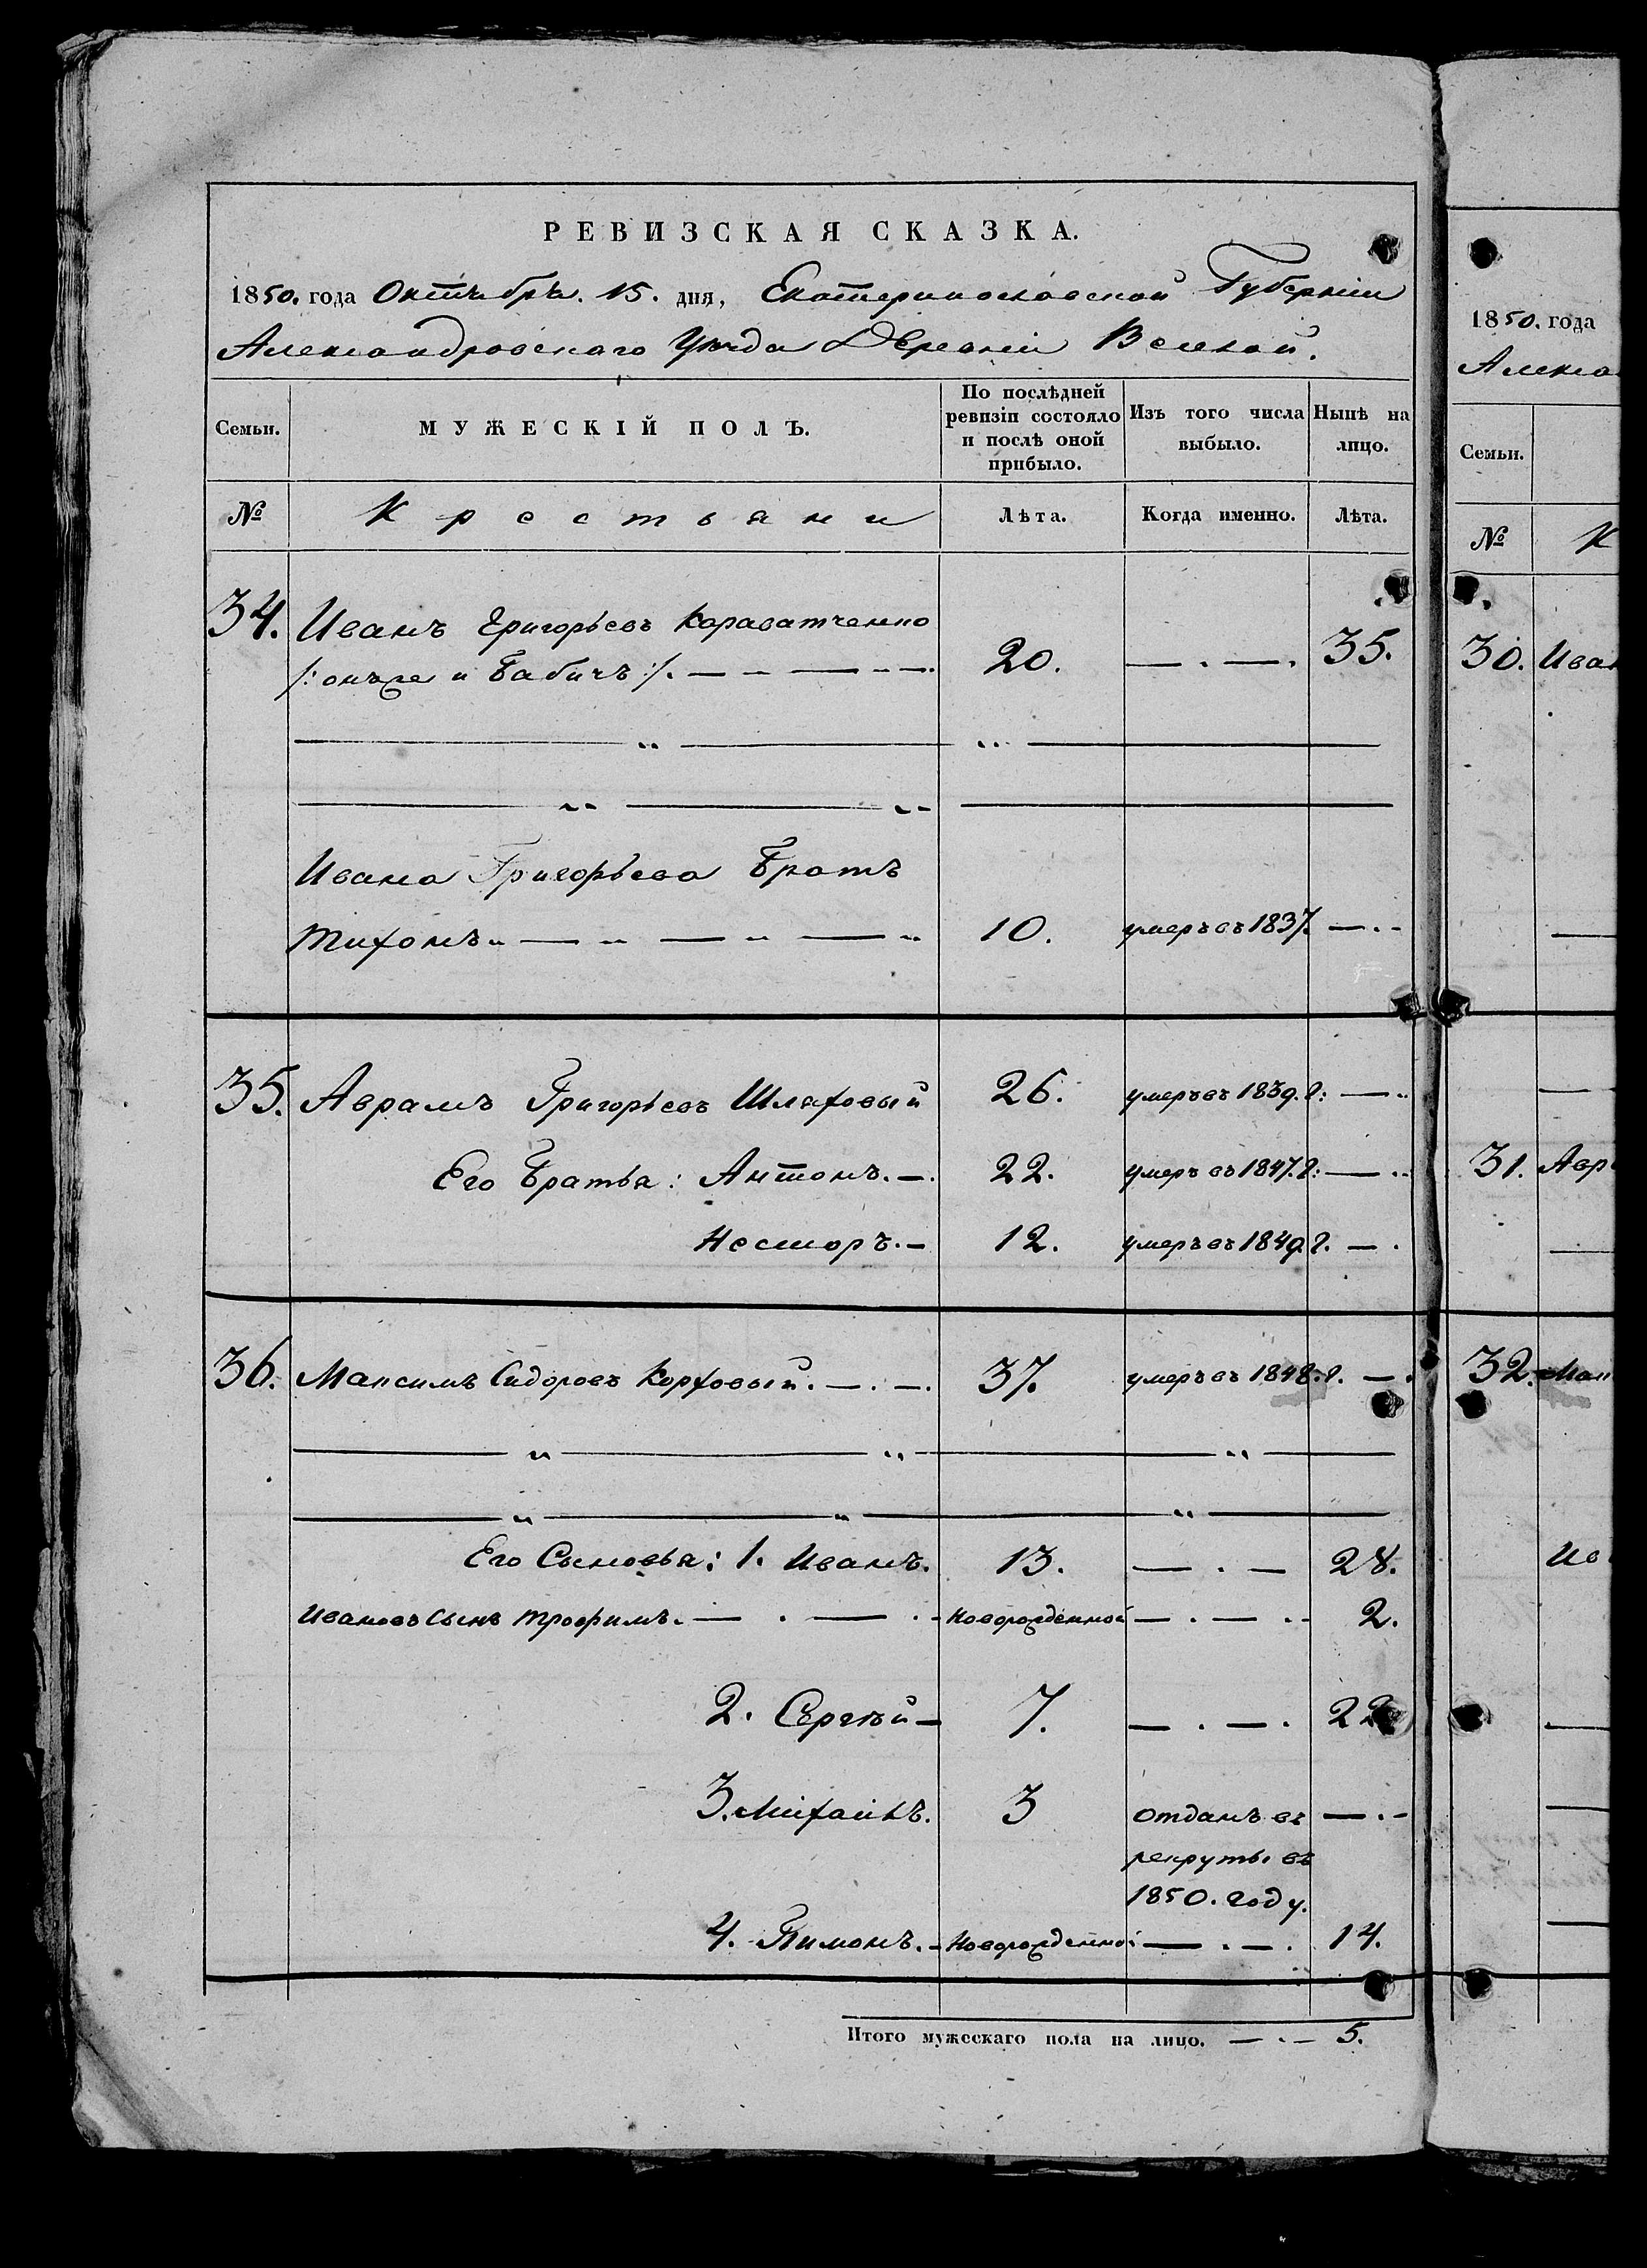 РЕВИЗСКАЯ СКАЗКА.
1850. года Октября. 15. дня, Екатеринославской Губерніи
Александровскаго Уѣзда Деревни
Семьи. МУЖЕСКІЙ ПОЛЪ. По послѣдней ревизіи состояло и послѣ оной прибыло. Изъ того числа выбыло. Нынѣ на лицо.
№ Крестьяни Лѣта. Когда именно. Лѣта.
34. Иванъ Григорьевъ Караватченко
/: онъже и Бабичъ :/. 20. 35.
Ивана Григорьева Братъ
Тихонъ 10. умеръ въ 1837.
35. Аврамъ Григорьевъ Шляховый 26. умеръ въ 1839. г:
Его Братья: Антонъ. 22. умеръ въ 1847. г:
Несторъ. 12. умеръ въ 1849 г.
36. Максимъ Сидоровъ Корховый. 37. умеръ въ 1848. г.
Его Сыновья: 1. Иванъ. 13. 28.
Ивановъ Сынъ Трофимъ. Новорожденной 2.
2. Сергѣй 7. 22
3. Михаилъ. 3 отданъ въ
рекруты въ
1850. году.
4. Пимонъ. Новорожденной 14.
Итого мужескаго пола на лицо. 5.
1850. года
Алекса
Семьи.
№ К
30. Иван
31. Авр
32. Мак
Ив